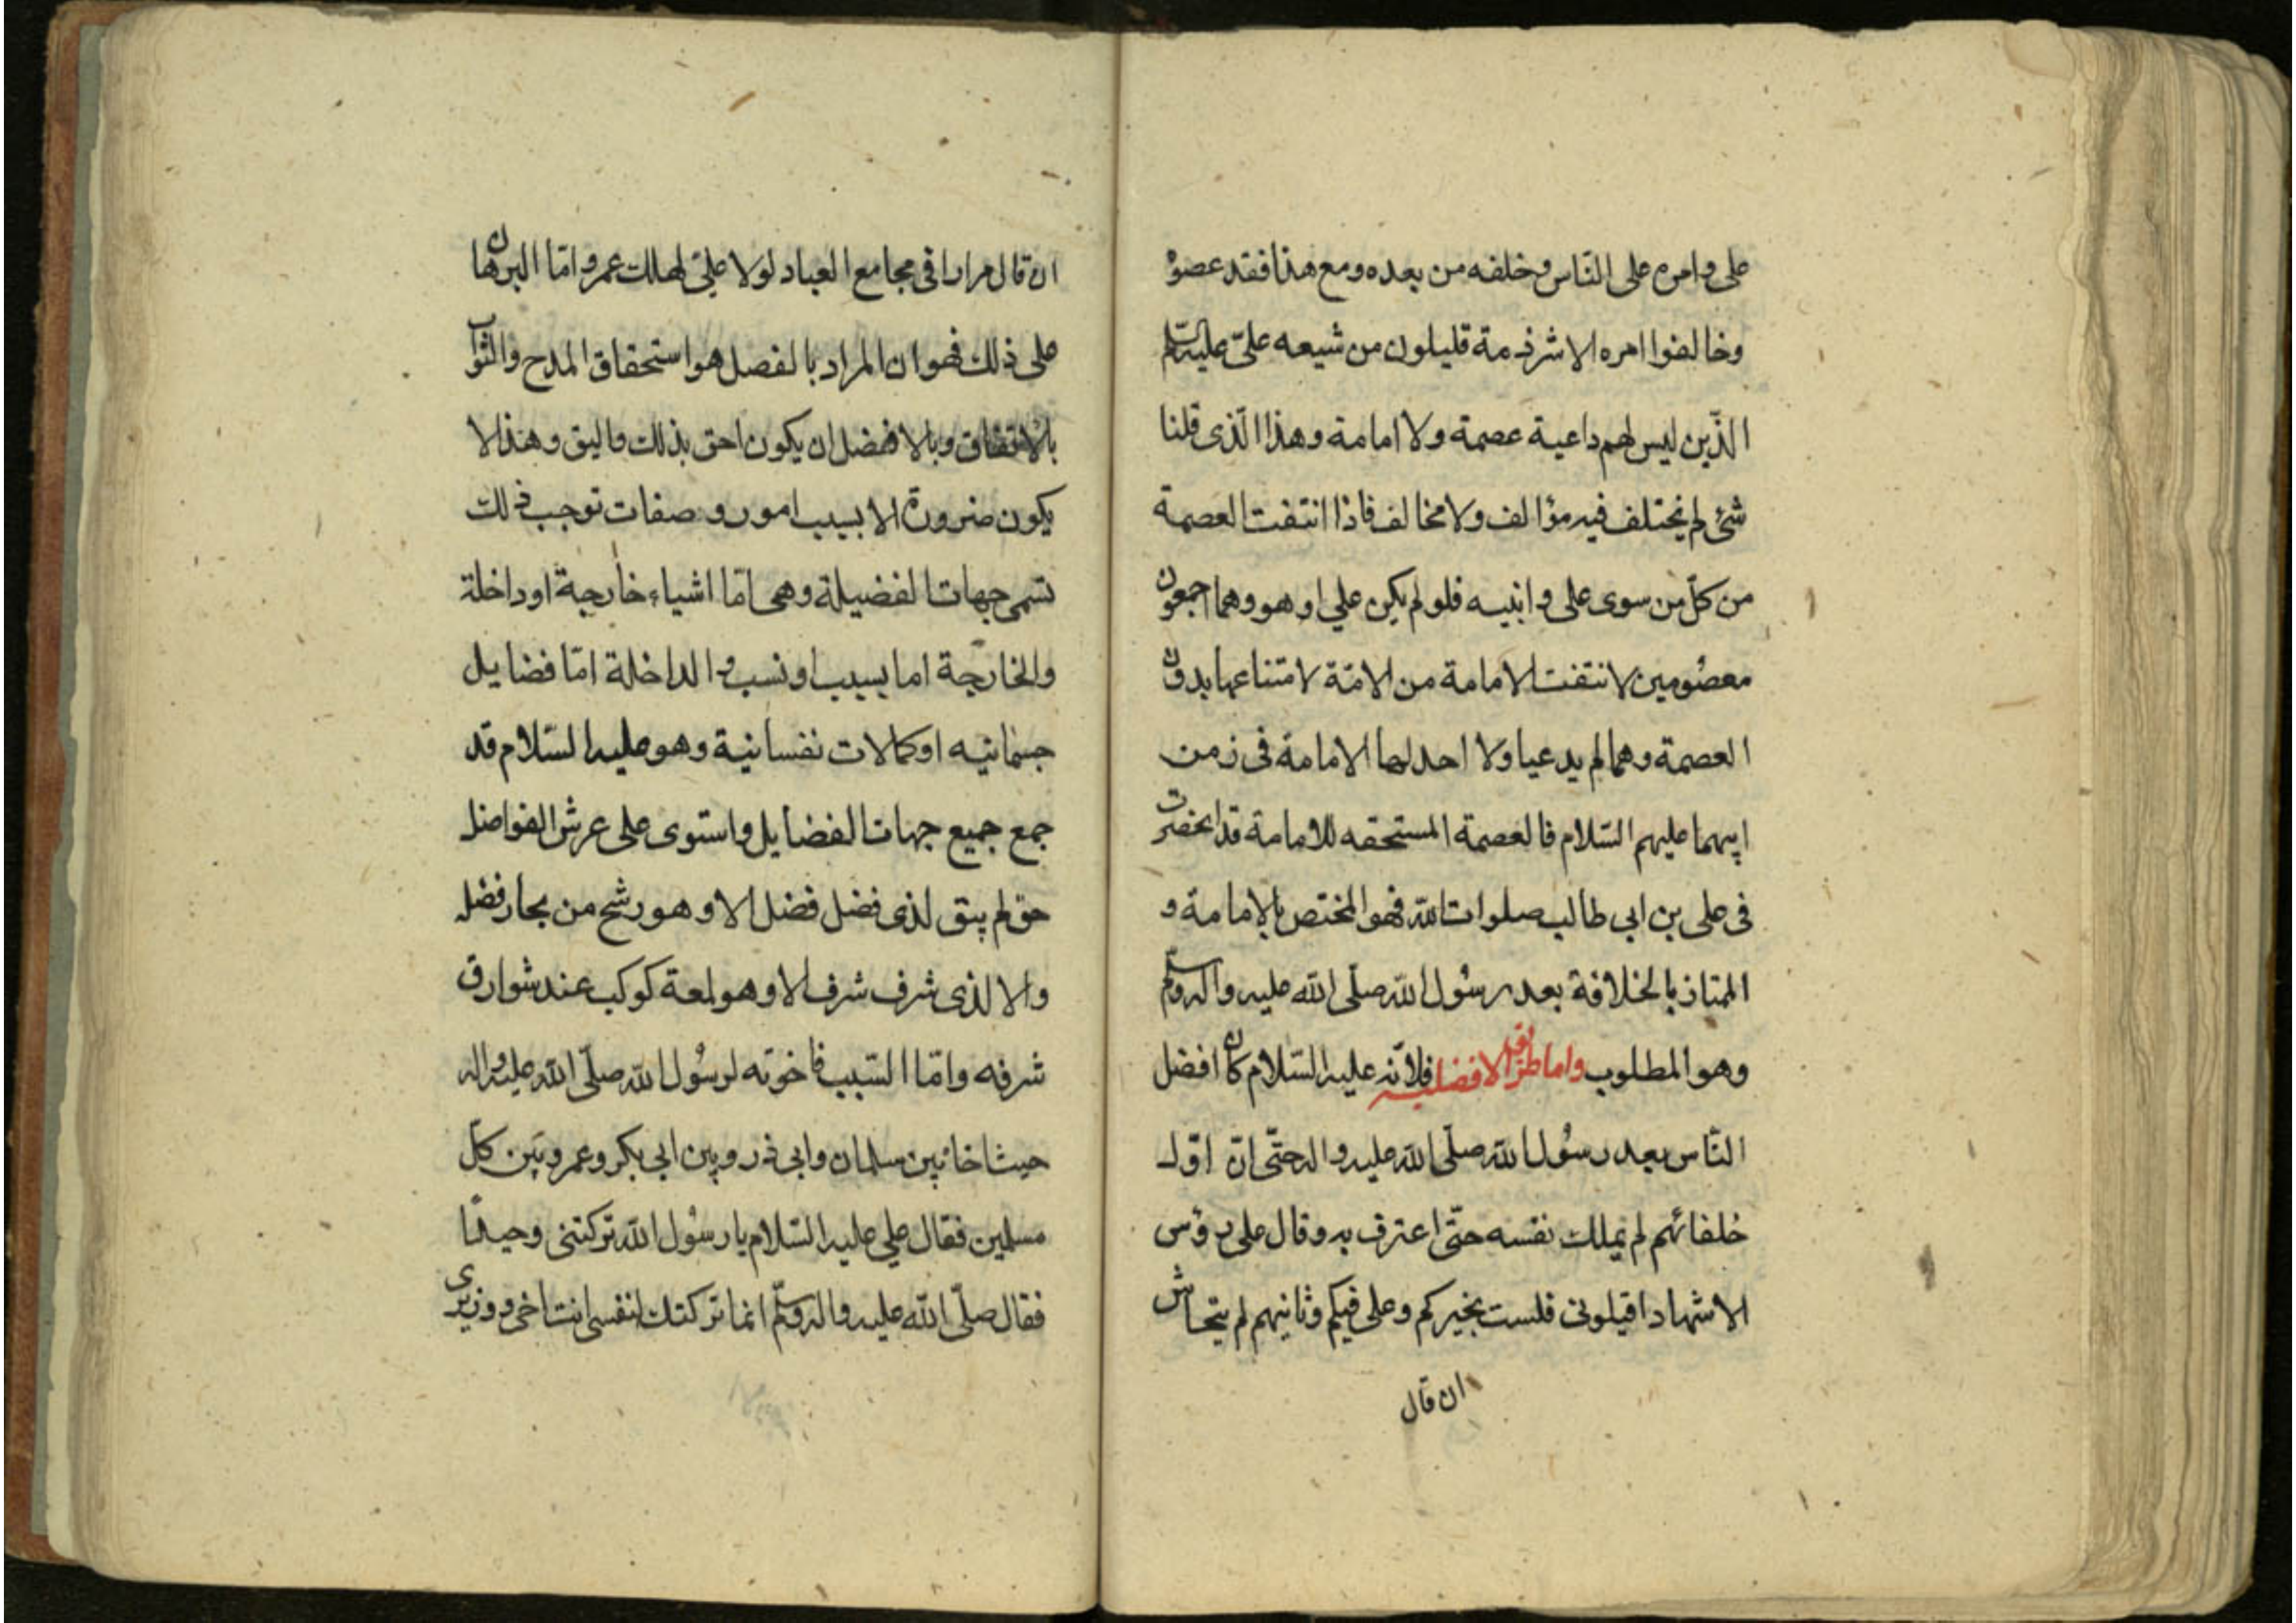 على وامره على النّاس وخلفه من بعده ومع هذا فقد عصوْ
وخالفوا امره الا شرذمة قليلون من شيعه علىّ عليه السّلم
الّذين ليس لهم داعية عصمة ولا امامة وهذا الّذى قلنا
شئ لم يختلف فيه مؤالف ولا مخالف فاذا انتفت العصمة
من كلّ من سوى على وابنيه فلو لم يكن علي او هو وهما اجمعون
معصُومين لانتفت الامامة من الامّة لامتناعها بدون
العصمة وهما لم يدعيا ولا احد لهما الامامة فى زمن
ابيهما عليهم السّلام فالعصمة المستحقه للامامة قد انحصرت
فى على بن ابي طالب صلوات الله فهو المختص بالامامة و
الممتاز بالخلافة بعد رسُول الله صلّى الله عليه واله وسلّم
وهو المطلوب واما طريق الافضليه فلانّه عليه السّلام كان افضل
النّاس بعد رسُول الله صلّى الله عليه واله حتّى انّ اوّل
خلفائهم لم يملك نفسه حتّى اعترف به وقال على رؤس
الاشهاد اقيلونى فلست بخيركم وعلى فيكم وثانيهم لم يتحاش
ان قال
ان قال مرارا فى مجامع العباد لولا علىّ لهلك عمر وامّا البرهان
على ذلك فهو ان المراد بالفصل هو استحقاق المدح والثواب
بالاتفاق وبالافضل ان يكون احق بذلك واليق وهذا لا
يكون ضرورة الا بسبب امور وصفات توجب ذلك
تسمى جهات الفضيلة وهى امّا اشياء خارجة او داخلة
والخارجة اما بسبب او نسب والداخلة امّا فضايل
جسمانيه او كمالات نفسانية وهو عليه السّلام قد
جمع جميع جهات الفضايل واستوى على عرش الفواضل
حتى لم يبق لذى فضل فضل الا وهو رشح من بحار فضله
ولا لذى شرف شرف الا وهو لمعة كوكب عند شوارق
شرفه وامّا السّبب فاخوّته لرسُول الله صلّى الله عليه واله
حيث اخا بين سلمان وابي ذر وبين ابي بكر وعمر وبَين كلّ
مسلمين فقال علي عليه السّلام يا رسُول الله تركتنى وحيدًا
فقال صلّى الله عليه واله وسلّم انما تركتك لنفسى انت اخى ووزيرى